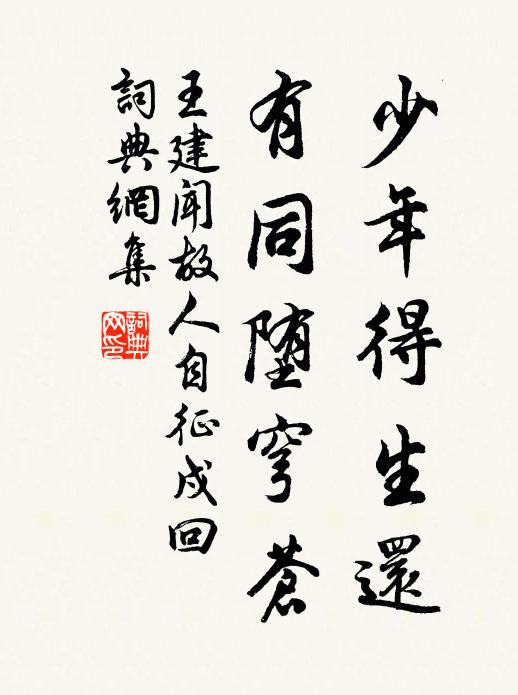 少年得生還
有同墮穹蒼
王建聞故人自征戍回
詞典網集
詞典網印